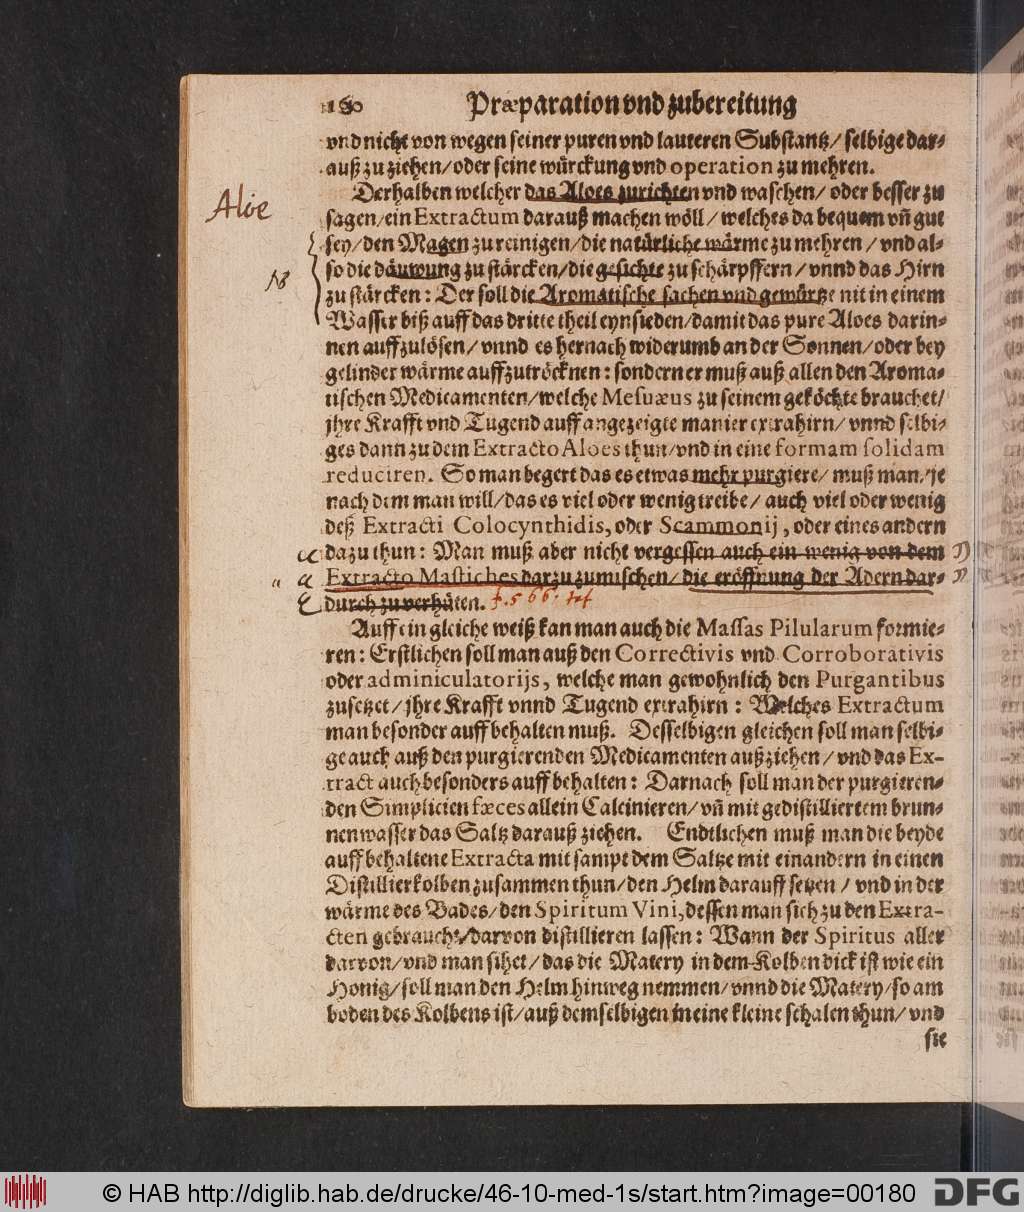 160 Præparation vnd zubereitung
vnd nicht von wegen seiner puren vnd lauteren Substantz / selbige dar-
auß zu ziehen / oder seine würckung vnd operation zu mehren.
Derhalben welcher das Aloes zurichten vnd waschen / oder besser zu
Aloe
sagen / ein Extractum darauß machen wöll / welches da bequem vñ gut
sey / den Magen zu reinigen / die natürliche wärme zu mehren / vnd al-
NB
so die däuwung zu stärcken / die gesichte zu schärpffern / vnnd das Hirn
zu stärcken: Der soll die Aromatische sachen vnd gewürtze nit in einem
Wasser biß auff das dritte theil eynsieden / damit das pure Aloes darin-
nen auffzulösen / vnnd es hernach widerumb an der Sonnen / oder bey
gelinder wärme auffzutröcknen: sondern er muß auß allen den Aroma-
tischen Medicamenten / welche Mesuæus zu seinem geköchte brauchet /
jhre Krafft vnd Tugend auff angezeigte manier extrahirn / vnnd selbi-
ges dann zu dem Extracto Aloes thun / vnd in eine formam solidam
reduciren. So man begert das es etwas mehr purgiere / muß man / je
nach dem man will / das es viel oder wenig treibe / auch viel oder wenig
deß Extracti Colocynthidis, oder Scammonij, oder eines andern
dazu thun: Man muß aber nicht vergessen auch ein wenig von dem
Extracto Mastiches darzu zumischen / die eröffnung der Adern dar-
durch zu verhüten. f. 566.
Auff ein gleiche weiß kan man auch die Massas Pilularum formie-
ren: Erstlichen soll man auß den Correctivis vnd Corroborativis
oder adminiculatorijs, welche man gewohnlich den Purgantibus
zusetzet / jhre Krafft vnnd Tugend extrahirn: Welches Extractum
man besonder auff behalten muß. Desselbigen gleichen soll man selbi-
ge auch auß den purgierenden Medicamenten außziehen / vnd das Ex-
tract auch besonders auff behalten: Darnach soll man der purgieren-
den Simplicien fæces allein Calcinieren / vñ mit gedistilliertem brun-
nenwasser das Saltz darauß ziehen. Endtlichen muß man die beyde
auff behaltene Extracta mit sampt dem Saltze mit einandern in einen
Distillierkolben zusammen thun / den Helm darauff setzen / vnd in der
wärme des Bades / den Spiritum Vini, dessen man sich zu den Extra-
cten gebraucht / darvon distillieren lassen: Wann der Spiritus aller
darvon / vnd man sihet / das die Matery in dem Kolben dick ist wie ein
Honig / soll man den Helm hinweg nemmen / vnnd die Matery / so am
boden des Kolbens ist / auß demselbigen in eine kleine schalen thun / vnd
sie
© HAB http://diglib.hab.de/drucke/46-10-med-1s/start.htm?image=00180
DFG